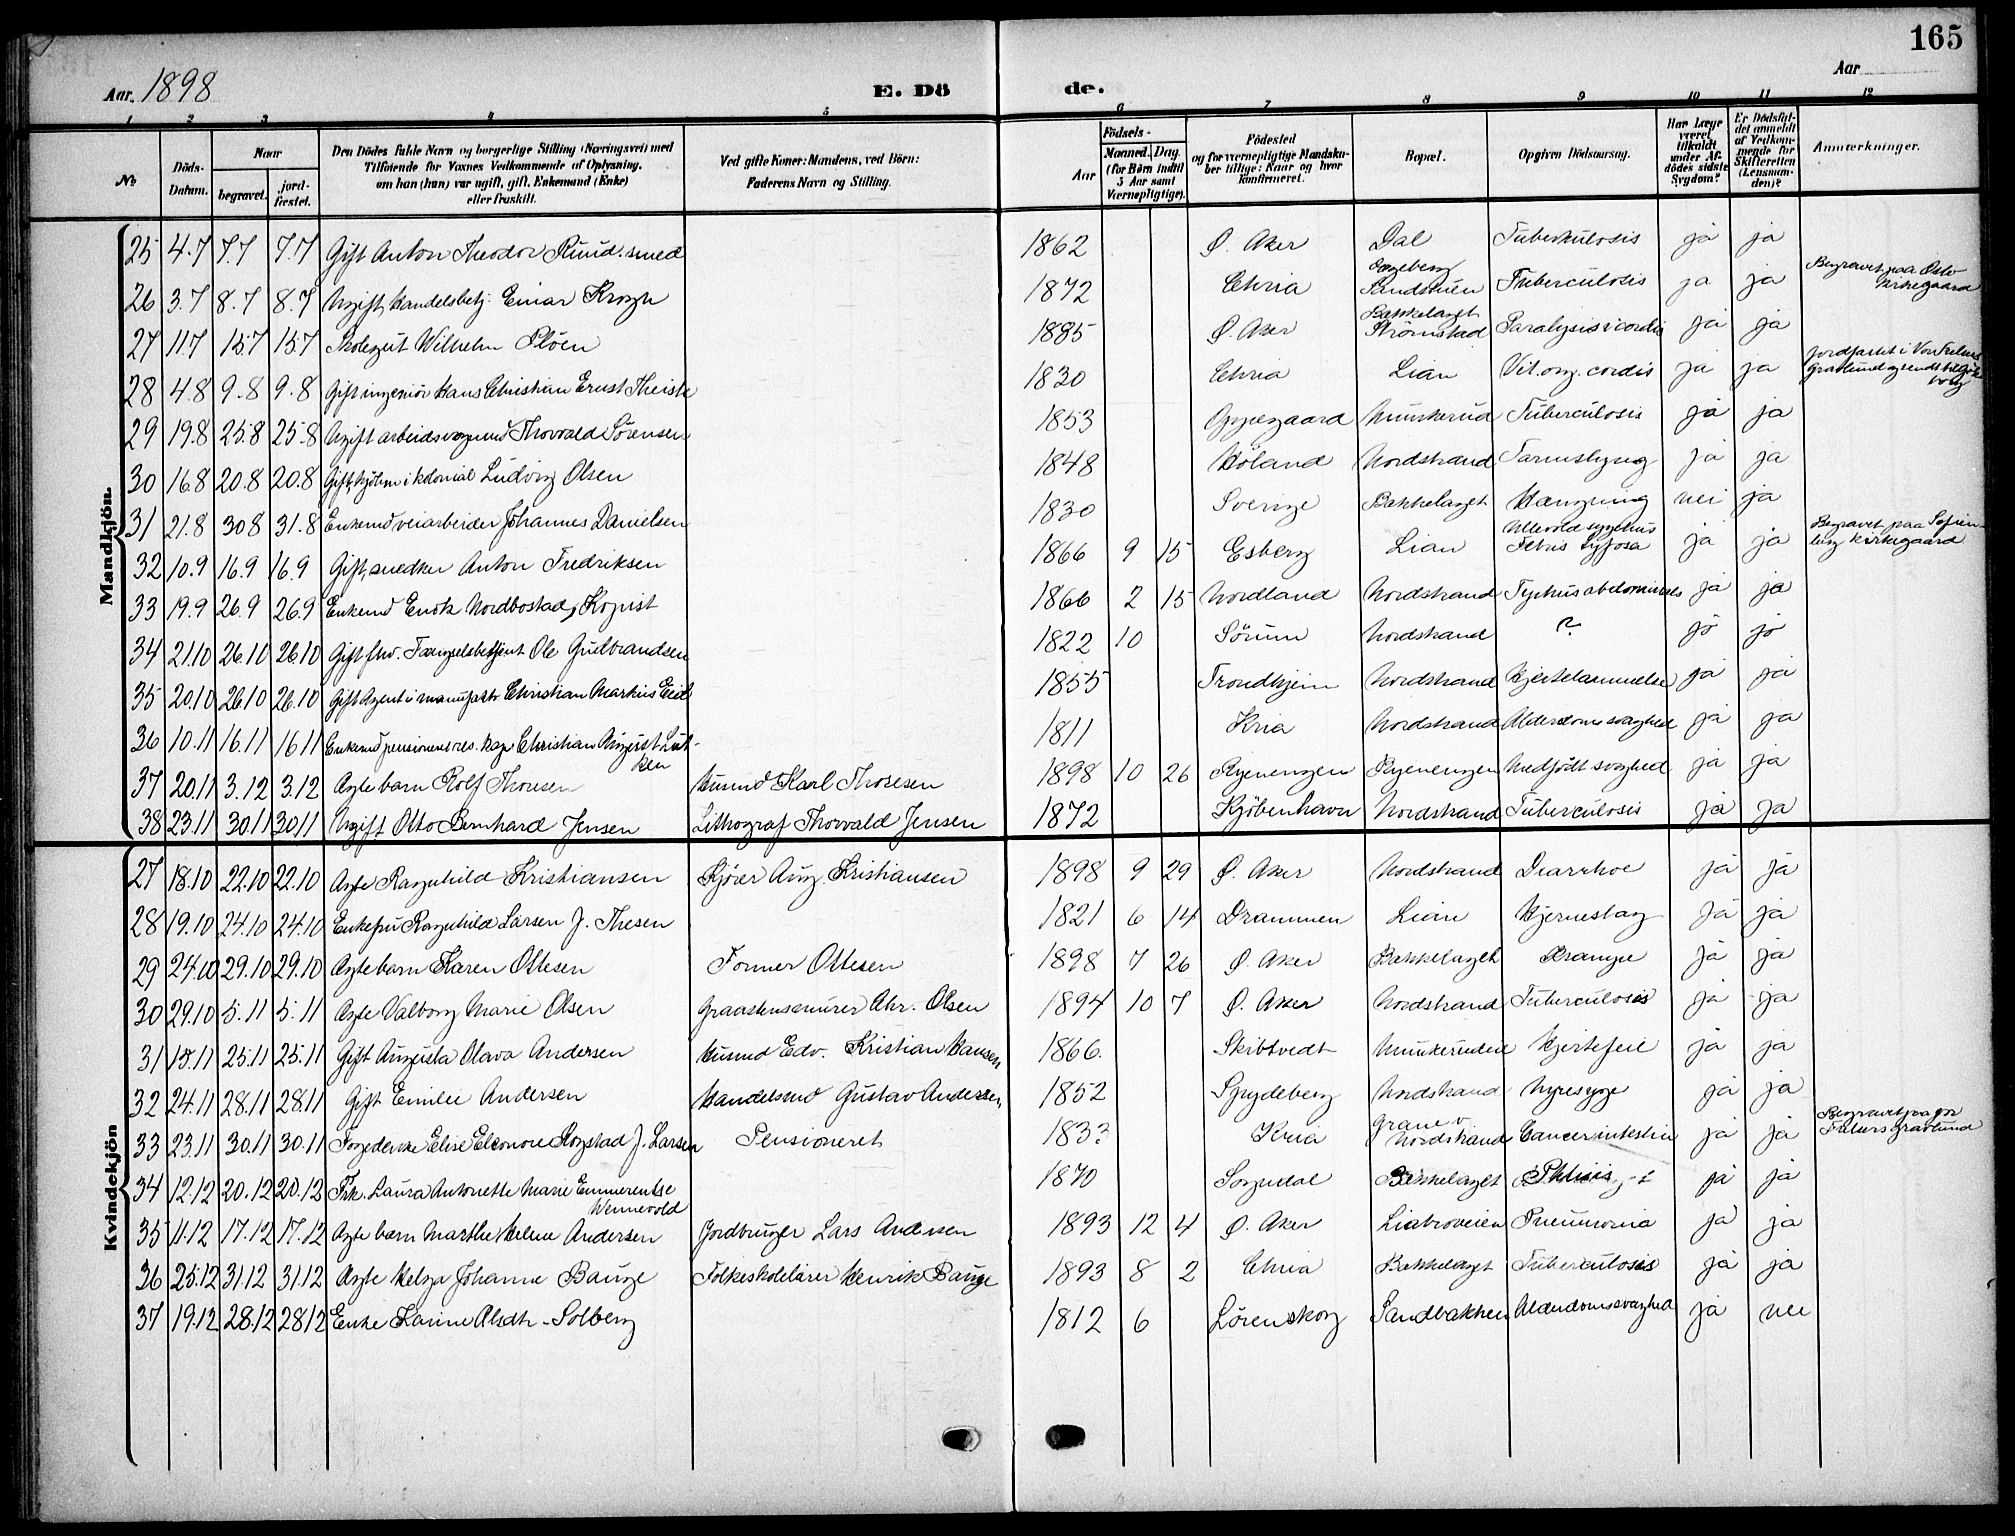 165
Aar. 1898
E. Dö
de.
Aar
1 2 3 4 5 6 7 8 9 10 11 12
№
Döds-
Datum.
Naar
begravet.
jord-
fæstet.
Den Dödes fulde Navn og borgerlige Stilling (Næringsvei) med
Tilföiende for Voxnes Vedkommende af Oplysning,
om han (hun) var ugift, gift, Enkemand (Enke)
eller fraskilt.
Ved gifte Koner: Mandens, ved Börn:
Faderens Navn og Stilling.
Födsels-
Aar
Maaned. Dag.
(for Börn indtil
5 Aar samt
Værnepligtige).
Födested
og for værnepligtige Mandska-
ber tillige: Naar og hvor
konfirmeret.
Bopæl.
Opgiven Dödsaarsag.
Har Læge
været
tilkaldt
under Af-
dödes sidste
Sygdom?
Er Dödsfal-
det anmeldt
af Vedkom-
mende for
Skifteretten
(Lensman-
den)?
Anmerkninger.
Mandkjön.
25 4.7 7.7 7.7 Gift Anton Theodor Ruud. smed 1862 Ø. Aker Dal Tuberkulosis ja ja
26 3.7 8.7 8.7 Ugift, handelsbetj. Einar Krogh 1872 Chria Sandstuen Tuberculosis ja ja Begravet paa Oslo
kirkegaard
27 11.7 15.7 15.7 Skolegut Wilhelm Pløen 1885 Ø. Aker Bækkelaget
Strømstad Paralysis cordis ja ja
28 4.8 9.8 9.8 Gift ingeniør Hans Christian Ernst Theiste 1830 Chria Lian Vit. org. cordis ja ja
29 19.8 25.8 25.8 Ugift arbeidsvogmd Thorvald Sørensen 1853 Oppegaard Munkerud Tuberculosis ja ja
30 16.8 20.8 20.8 Gift, kjøbm i kolonial Ludvig Olsen 1848 Høland Nordstrand Tarmslyng ja ja
31 21.8 30.8 31.8 Enkemd veiarbeider Johannes Danielsen 1830 Sverige Bækkelaget Hængning nei ja
32 10.9 16.9 16.9 Gift, snedker Anton Fredriksen 1866 9 15 Esberg Lian Ullevold sygehus
Febris tyfosa ja ja Begravet paa Sofien-
berg kirkegaard
33 19.9 26.9 26.9 Enkemd Enok Nordbostad, Kopist 1866 2 15 Nordland Nordstrand Typhus abdominalis ja ja
34 21.10 26.10 26.10 Gift fhv. Fængselsbetjent Ole Gudbrandsen 1822 10 Sørum Nordstrand ? ja ja
35 20.10 26.10 26.10 Gift Agent i manufakt. Christian Markus Eid 1855 Trondhjem Nordstrand Hjertelammelse ja ja
36 10.11 16.11 16.11 Enkemd pensioneret res. kap Christian August Lüt-
ken 1811 Kria Nordstrand Alderdomssvaghed ja ja
37 20.11 3.12 3.12 Ægte barn Rolf Thoresen Husmd Karl Thoresen 1898 10 26 Ryenengen Ryenengen Medfødt svaghed ja ja
38 23.11 30.11 30.11 Ugift Otto Bernhard Jensen Lithograf Thorvald Jensen 1872 Kjøbenhavn Nordstrand Tuberculosis ja ja
Kvindekjön
27 18.10 22.10 22.10 Ægte Ragnhild Kristiansen Kjører Aug. Kristiansen 1898 9 29 Ø. Aker Nordstrand Diarrhoe ja ja
28 19.10 24.10 24.10 Enkefru Ragnhild Larsen f. Thesen 1821 6 14 Drammen Lian Hjerneslag ja ja
29 24.10 29.10 29.10 Ægte barn Karen Ottesen Former Ottesen 1898 7 26 Ø. Aker Bækkelaget Krampe ja ja
30 29.10 5.11 5.11 Ægte Valborg Marie Olsen Graastensmurer Ahr. Olsen 1894 10 7 Ø. Aker Nordstrand Tuberculosis ja ja
31 15.11 25.11 25.11 Gift Augusta Olava Andersen Husmd Edv. Kristian Hansen 1866. Skibtvedt Munkerudeie Hjertefeil ja ja
32 24.11 28.11 28.11 Gift Emilie Andersen Handelsmd Gustav Andersen 1852 Spydeberg Nordstrand Nyresyge ja ja
33 23.11 30.11 30.11 Fogedenke Elise Eleonore Rogstad f. Larsen Pensioneret 183? Kria Grane v
Nordstrand Cancer intestin ja ja Begravet paa Vor
Frelsers gravlund
34 12.12 20.12 20.12 Frk. Laura Antonette Marie Emmerentse
Wennevold 1870 Sogndal Bækkelaget Phthisis ja ja
35 11.12 17.12 17.12 Ægte barn Marthe Helene Andersen Jordbruger Lars Andersen 1893 12 4 Ø. Aker Liabroveien Pneumonia ja ja
36 25.12 31.12 31.12 Ægte Helga Johanne Bauge Folkeskolelærer Henrik Bauge 1893 8 2 Chria Bækkelaget Tuberculosis ja ja
37 19.12 28.12 28.12 Enke Karine Olsdtr. Solberg 1812 6 Lørenskog Sandbakken Alderdomssvaghed ja nei